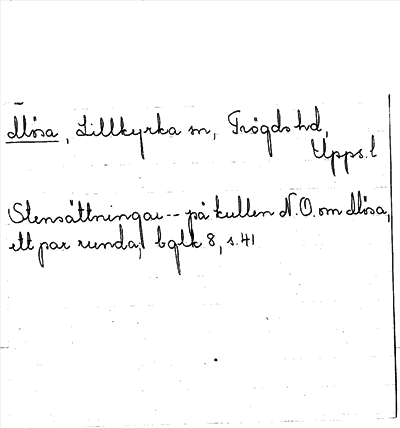 Mösa, Lillkyrka sn, Trögds hd,
Upps. l
Stensättningar -- på kullen N.O. om Mösa,
ett par runda, bglk 8, s. 41